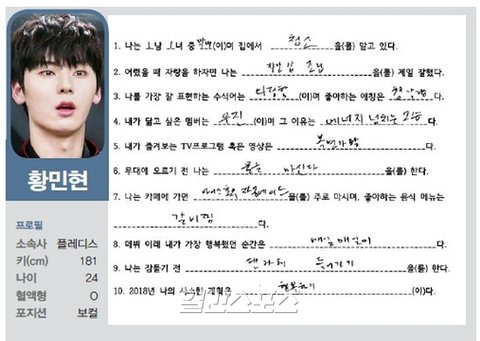 황민현
프로필
소속사 플레디스
키(cm) 181
나이 24
혈액형 O
포지션 보컬
1. 나는 1남 1녀 중 막내(이)며 집에서 청소을(를) 맡고 있다.
2. 어렸을 때 자랑을 하자면 나는 을(를) 제일 잘했다.
3. 나를 가장 잘 표현하는 수식어는 다정함(이)며 좋아하는 애칭은 다.
4. 내가 닮고 싶은 멤버는 우진(이)며 그 이유는 에너지 넘치는 다.
5. 내가 즐겨보는 TV프로그램 혹은 영상은 복면가왕다.
6. 무대에 오르기 전 나는 물을 마신다을(를) 한다.
7. 나는 카페에 가면 을(를) 주로 마시며, 좋아하는 음식 메뉴는
갈비찜다.
8. 데뷔 이래 내가 가장 행복했던 순간은 매일매일이다.
9. 나는 잠들기 전 팬카페 들어가기을(를) 한다.
10. 2018년 나의 사소한 계획은 행복하기(이)다.
일간스포츠